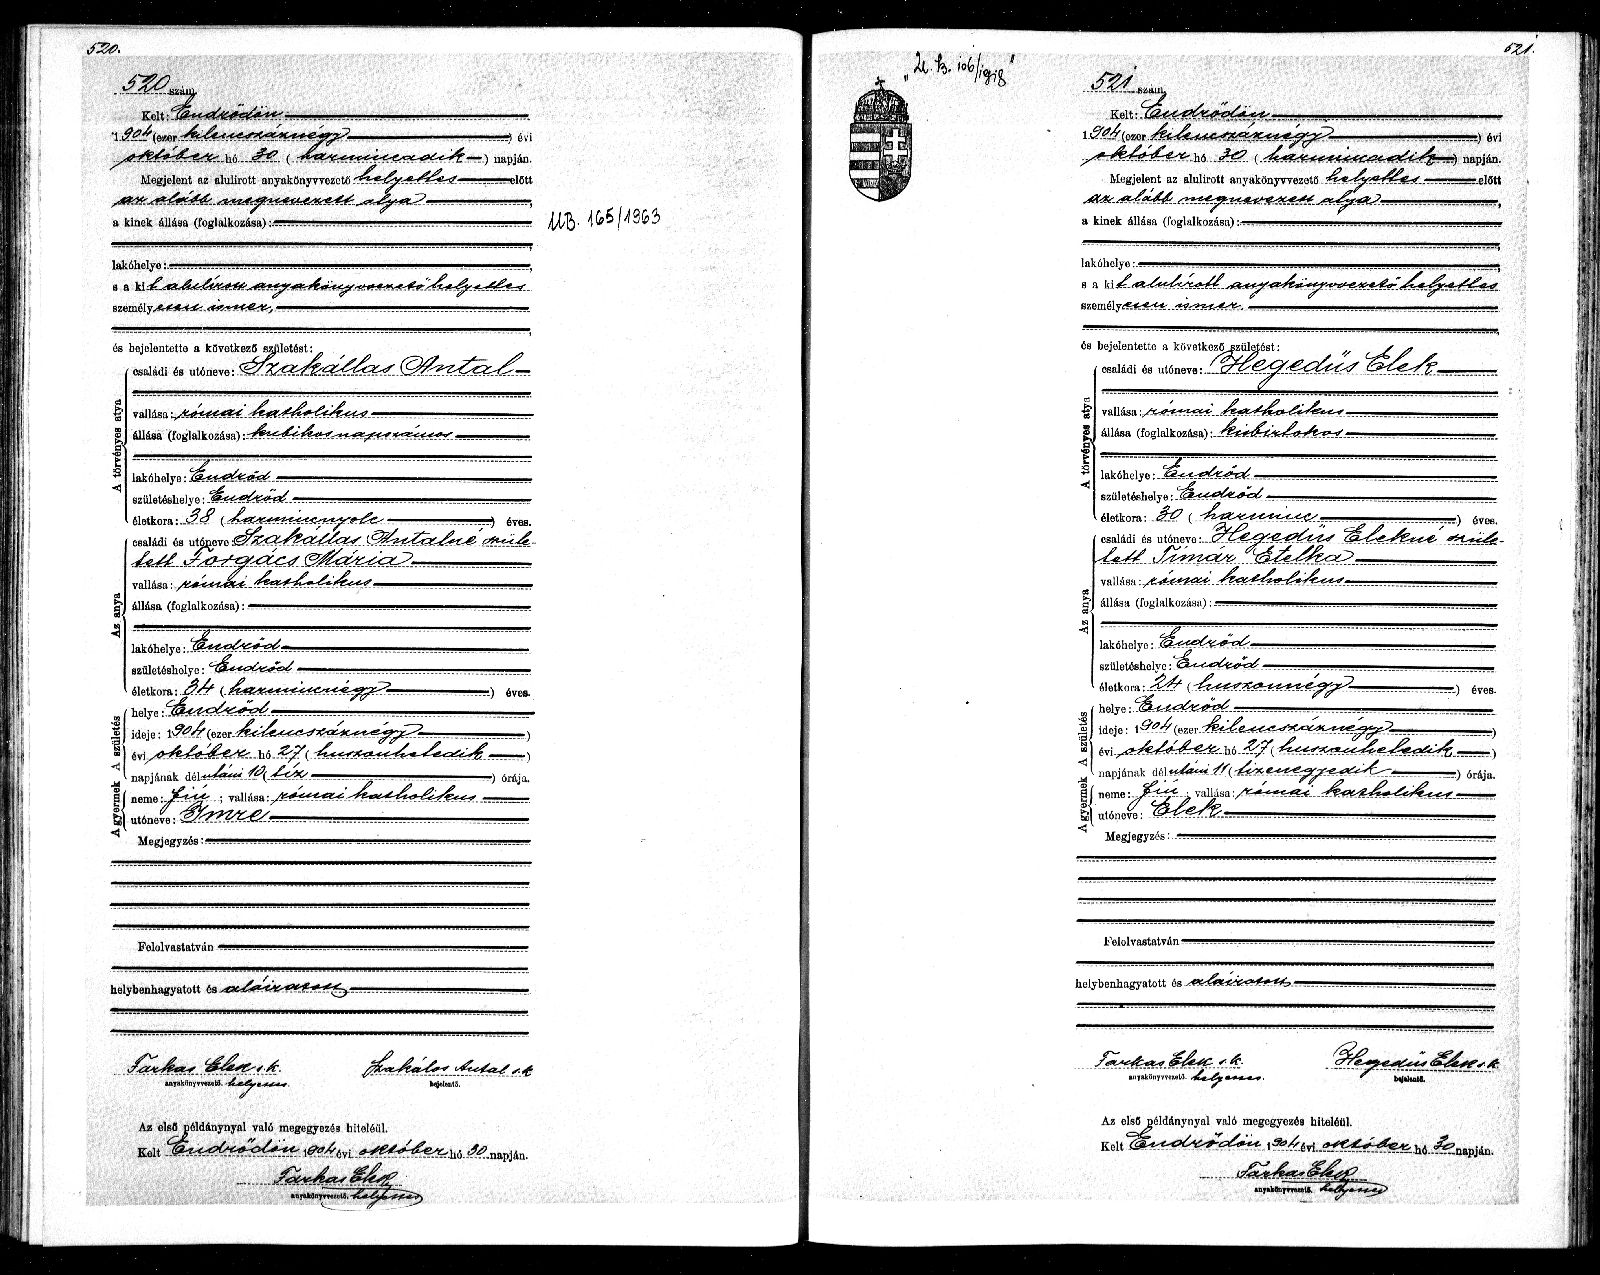 520.
520 szám.
Kelt: Endrődön
1904 (ezer kilenczáznégy) évi
október hó 30 (harmincadik) napján.
Megjelent az alulirott anyakönyvvezető helyettes előtt
az alább megnevezett atya,
a kinek állása (foglalkozása):
lakóhelye:
s a kit alulírott anyakönyvvezető helyettes
személyesen ismer,
és bejelentette a következő születést:
A törvényes atya
családi és utóneve: Szakállas Antal
vallása: római katholikus
állása (foglalkozása): kubikos napszámos
lakóhelye: Endrőd
születéshelye: Endrőd
életkora: 38 (harmincnyolc) éves.
Az anya
családi és utóneve: Szakállas Antalné szüle-
tett Forgács Mária
vallása: római katholikus
állása (foglalkozása):
lakóhelye: Endrőd
születéshelye: Endrőd
életkora: 34 (harmincnégy) éves.
A születés
helye: Endrőd
ideje: 1904 (ezer kilencszáznégy)
évi október hó 27 (huszonhetedik)
napjának délutáni 10 (tíz) órája.
A gyermek
neme: fiú; vallása: római katholikus
utóneve: Imre
Megjegyzés:
Felolvastatván
helybenhagyatott és aláiratott
Farkas Elek s.k. Szakálos Antal s.k
anyakönyvvezető helyettes. bejelentő.
Az első példánynyal való megegyezés hiteléül.
Kelt Endrődön 1904 évi október hó 30 napján.
Farkas Elek
anyakönyvvezető helyettes
UB. 165/1963
521.
521 szám.
Kelt: Endrődön
1904 (ezer kilencszáznégy) évi
október hó 30 (harmincadik) napján.
Megjelent az alulirott anyakönyvvezető helyettes előtt
az alább megnevezett atya,
a kinek állása (foglalkozása):
lakóhelye:
s a kit alulírott anyakönyvvezető helyettes
személyesen ismer,
és bejelentette a következő születést:
A törvényes atya
családi és utóneve: Hegedüs Elek
vallása: római katholikus
állása (foglalkozása): kisbirtokos
lakóhelye: Endrőd
születéshelye: Endrőd
életkora: 30 (harminc) éves.
Az anya
családi és utóneve: Hegedüs Elekné szüle-
tett Tímár Etelka
vallása: római katholikus
állása (foglalkozása):
lakóhelye: Endrőd
születéshelye: Endrőd
életkora: 24 (huszonnégy) éves.
A születés
helye: Endrőd
ideje: 1904 (ezer kilencszáznégy)
évi október hó 27 (huszonhetedik)
napjának délutáni 11 (tizenegyedik) órája.
A gyermek
neme: fiú; vallása: római katholikus
utóneve: Elek
Megjegyzés:
Felolvastatván
helybenhagyatott és aláiratott
Farkas Elek s.k. Hegedüs Elek s.k.
anyakönyvvezető helyettes. bejelentő.
Az első példánynyal való megegyezés hiteléül.
Kelt Endrődön 1904 évi október hó 30 napján.
Farkas Elek
anyakönyvvezető helyettes